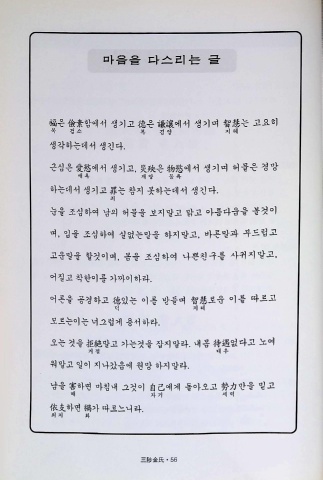 마음을 다스리는 글
福은 儉素함에서 생기고 德은 謙讓에서 생기며 智慧는 고요히
복 검소 덕 겸양 지혜
생각하는데서 생긴다.
근심은 愛慾에서 생기고, 災殃은 物慾에서 생기며 허물은 경망
애욕 재앙 물욕
하는데서 생기고 罪는 참지 못하는데서 생긴다.
죄
눈을 조심하여 남의 허물을 보지말고 맑고 아름다움을 볼것이
며, 입을 조심하여 실없는말을 하지말고, 바른말과 부드럽고
고운말을 할것이며, 몸을 조심하여 나쁜친구를 사귀지말고,
어질고 착한이를 가까이하라.
어른을 공경하고 德있는 이를 받들며 智慧로운 이를 따르고
덕 지혜
모르는이는 너그럽게 용서하라.
오는 것을 拒絶말고 가는것을 잡지말라. 내몸 待遇없다고 노여
거절 대우
워말고 일이 지나갔음에 원망 하지말라.
남을 害하면 마침내 그것이 自己에게 돌아오고 勢力만을 믿고
해 자기 세력
依支하면 禍가 따르느니라.
의지 화
三陟金氏 • 56